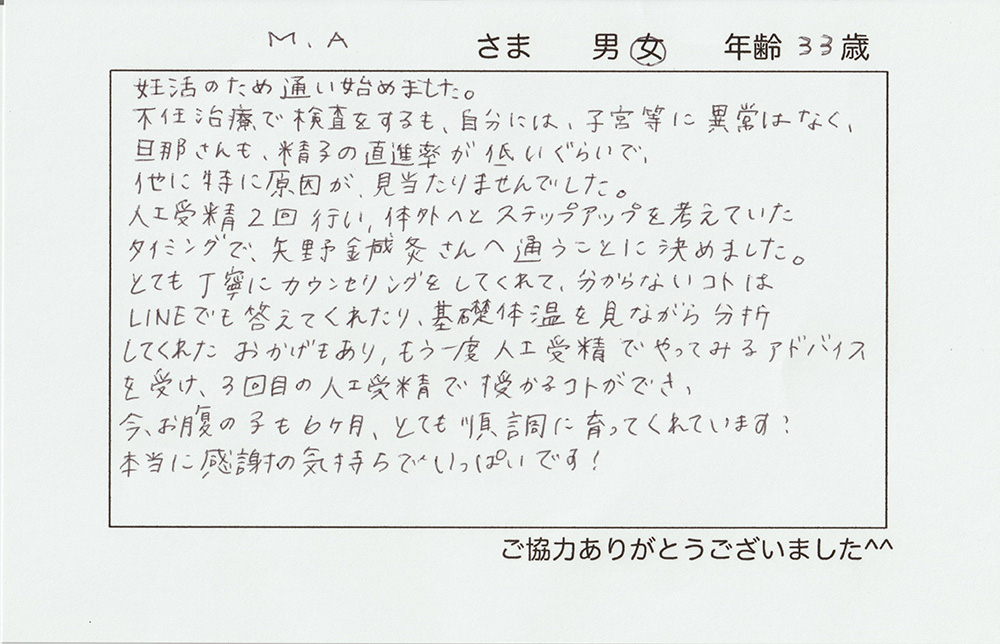 M.A さま 男 女 年齢 33歳
妊活のため通い始めました。
不妊治療で検査をするも、自分には、子宮等に異常はなく、
旦那さんも、精子の直進率が低いぐらいで、
他に特に原因が、見当たりませんでした。
人工受精2回行い、体外へとステップアップを考えていた
タイミングで、矢野鍼灸さんへ通うことに決めました。
とても丁寧にカウンセリングをしてくれて、分からないコトは
LINEでも答えてくれたり、基礎体温を見ながら分析
してくれたおかげもあり、もう一度人工受精でやってみるアドバイス
を受け、3回目の人工受精で授かるコトができ、
今、お腹の子も6ヶ月、とても順調に育ってくれています!
本当に感謝の気持ちでいっぱいです!
ご協力ありがとうございました^^